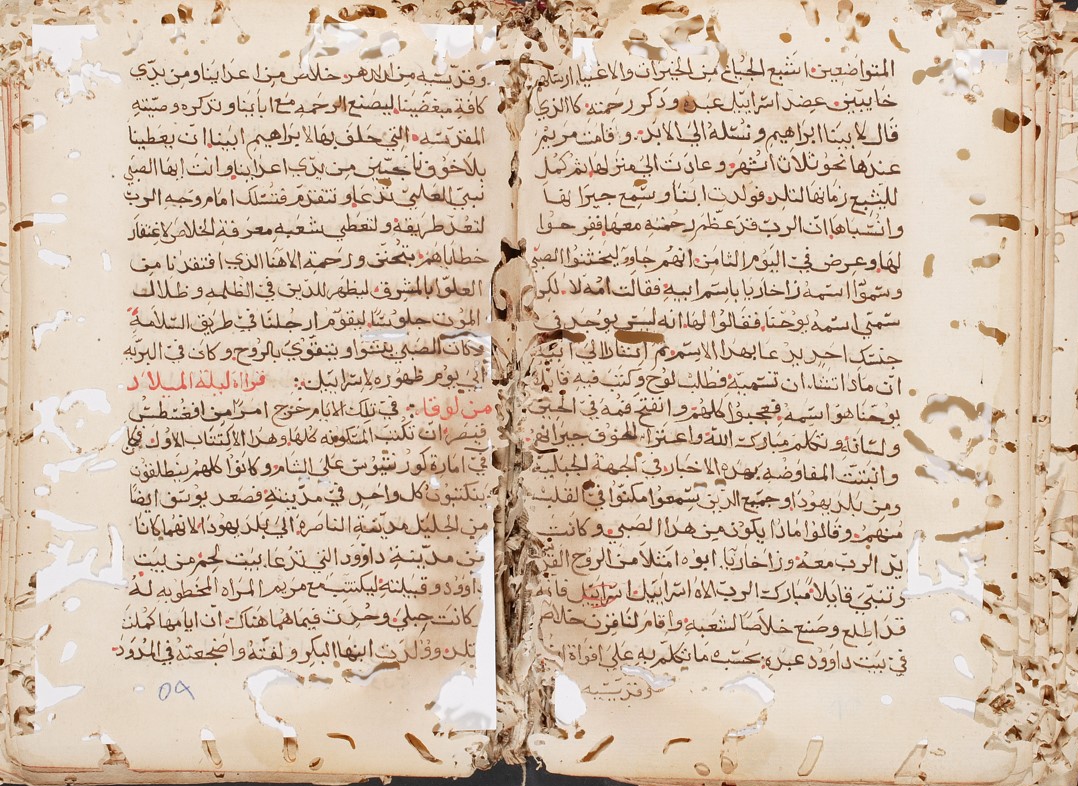 المتواضعين. اشبع الجياع من الخيرات والاغنيا ارسلهم
خايبين. عضد اسراييل عبده وذكر رحمته كالذي
قال لابينا ابراهيم ونسله الي الابد. وقامت مريم
عندها نحو ثلاث اشهر وعادت الي منزلها. ثم كمل
لليشبع زمانها لتلد. فولدت ابنا وسمع جيرانها
وانسباها ان الرب قد عظم رحمته معها ففرحوا
لها. وعرض في اليوم الثامن انهم جاوا ليختنوا الصبي
وسموا اسمه زاخاريا باسم ابيه. فقالت امه لا. لكن
سمي اسمه يوحنا. فقالوا لها انه ليس يوجد في
جنسك احد يدعا بهذا الاسم. ثم اشار الي ابيه
ان ماذا تشاء ان تسميه. وطلب لوح وكتب فيه قايلا
يوحنا هو اسمه. فعجبوا كلهم. وانفتح فمه في الحين
ولسانه وتكلم مباركا الله. واعترا الخوف جيرانهم
وانبثت المفاوضه بهذه الاخبار في الجهه الجبليه
ومن بلد يهودا. وجميع الذين سمعوا مكنوا في القلب
منهم. وقالوا ماذا يكون من هذا الصبي. وكانت
يد الرب معه. وزاخاريا ابوه امتلا من الروح القدس
وتنبي قايلا. مبارك الرب الاه اسراييل فانه
قد اطلع وصنع خلاصا لشعبه. واقام لنا قرن خلاص
في بيت داوود عبده. بحسب ما تكلم به علي افواه انبيا
وقديسيه
وقديسيه من الدهر. خلاص من اعداينا ومن يدي
كافة مبغضينا. ليصنع الرحمه مع ابايْنا وتذكره وصيته
المقدسه. التي حلف بها لابراهيم ابينا ان يعطينا
بلا خوف ناجيين من يدي اعداينا. وانت ايها الصبي
نبي العلي تدعا. وتتقدم فتسلك امام وجه الرب
لتعد طريقه. ولتعطي شعبه معرفة الخلاص لاغتفار
خطاياهم. بتحنن ورحمة الاهنا الذي افتقدنا من
العلو بالمشرق. ليظهر للذين في الظلمه وظلال
الموت جلوسا. ليقوم ارجلنا في طريق السلامه.
وكان الصبي ينشوا ويتقوي بالروح. وكان في البريه
الي يوم ظهوره لاسراييل. قراة ليلة الميلاد
من لوقا. في تلك الايام خرج امر من اوغسطس
قيصر ان تكتب المسكونه كلها. وهذا الاكتتاب الاول كان
في امارة كورنيوس علي الشام. وكانوا كلهم ينطلقون
يتكتبون كل واحد في مدينته. فصعد يوسف ايضا
من الجليل مدينة الناصره الي بلد يهودا. لانهما كانا
من مدينة داوود التي تدعا بيت لحم من بيت
داوود وقبيلته. ليكتسب مع مريم المراه المخطوبه له
كانت حبلي. وحدث فيما هما هناك. ان ايامها كملت
لتلد. وولدت ابنها البكر ولفته واضجعته في المزود.
٥٩